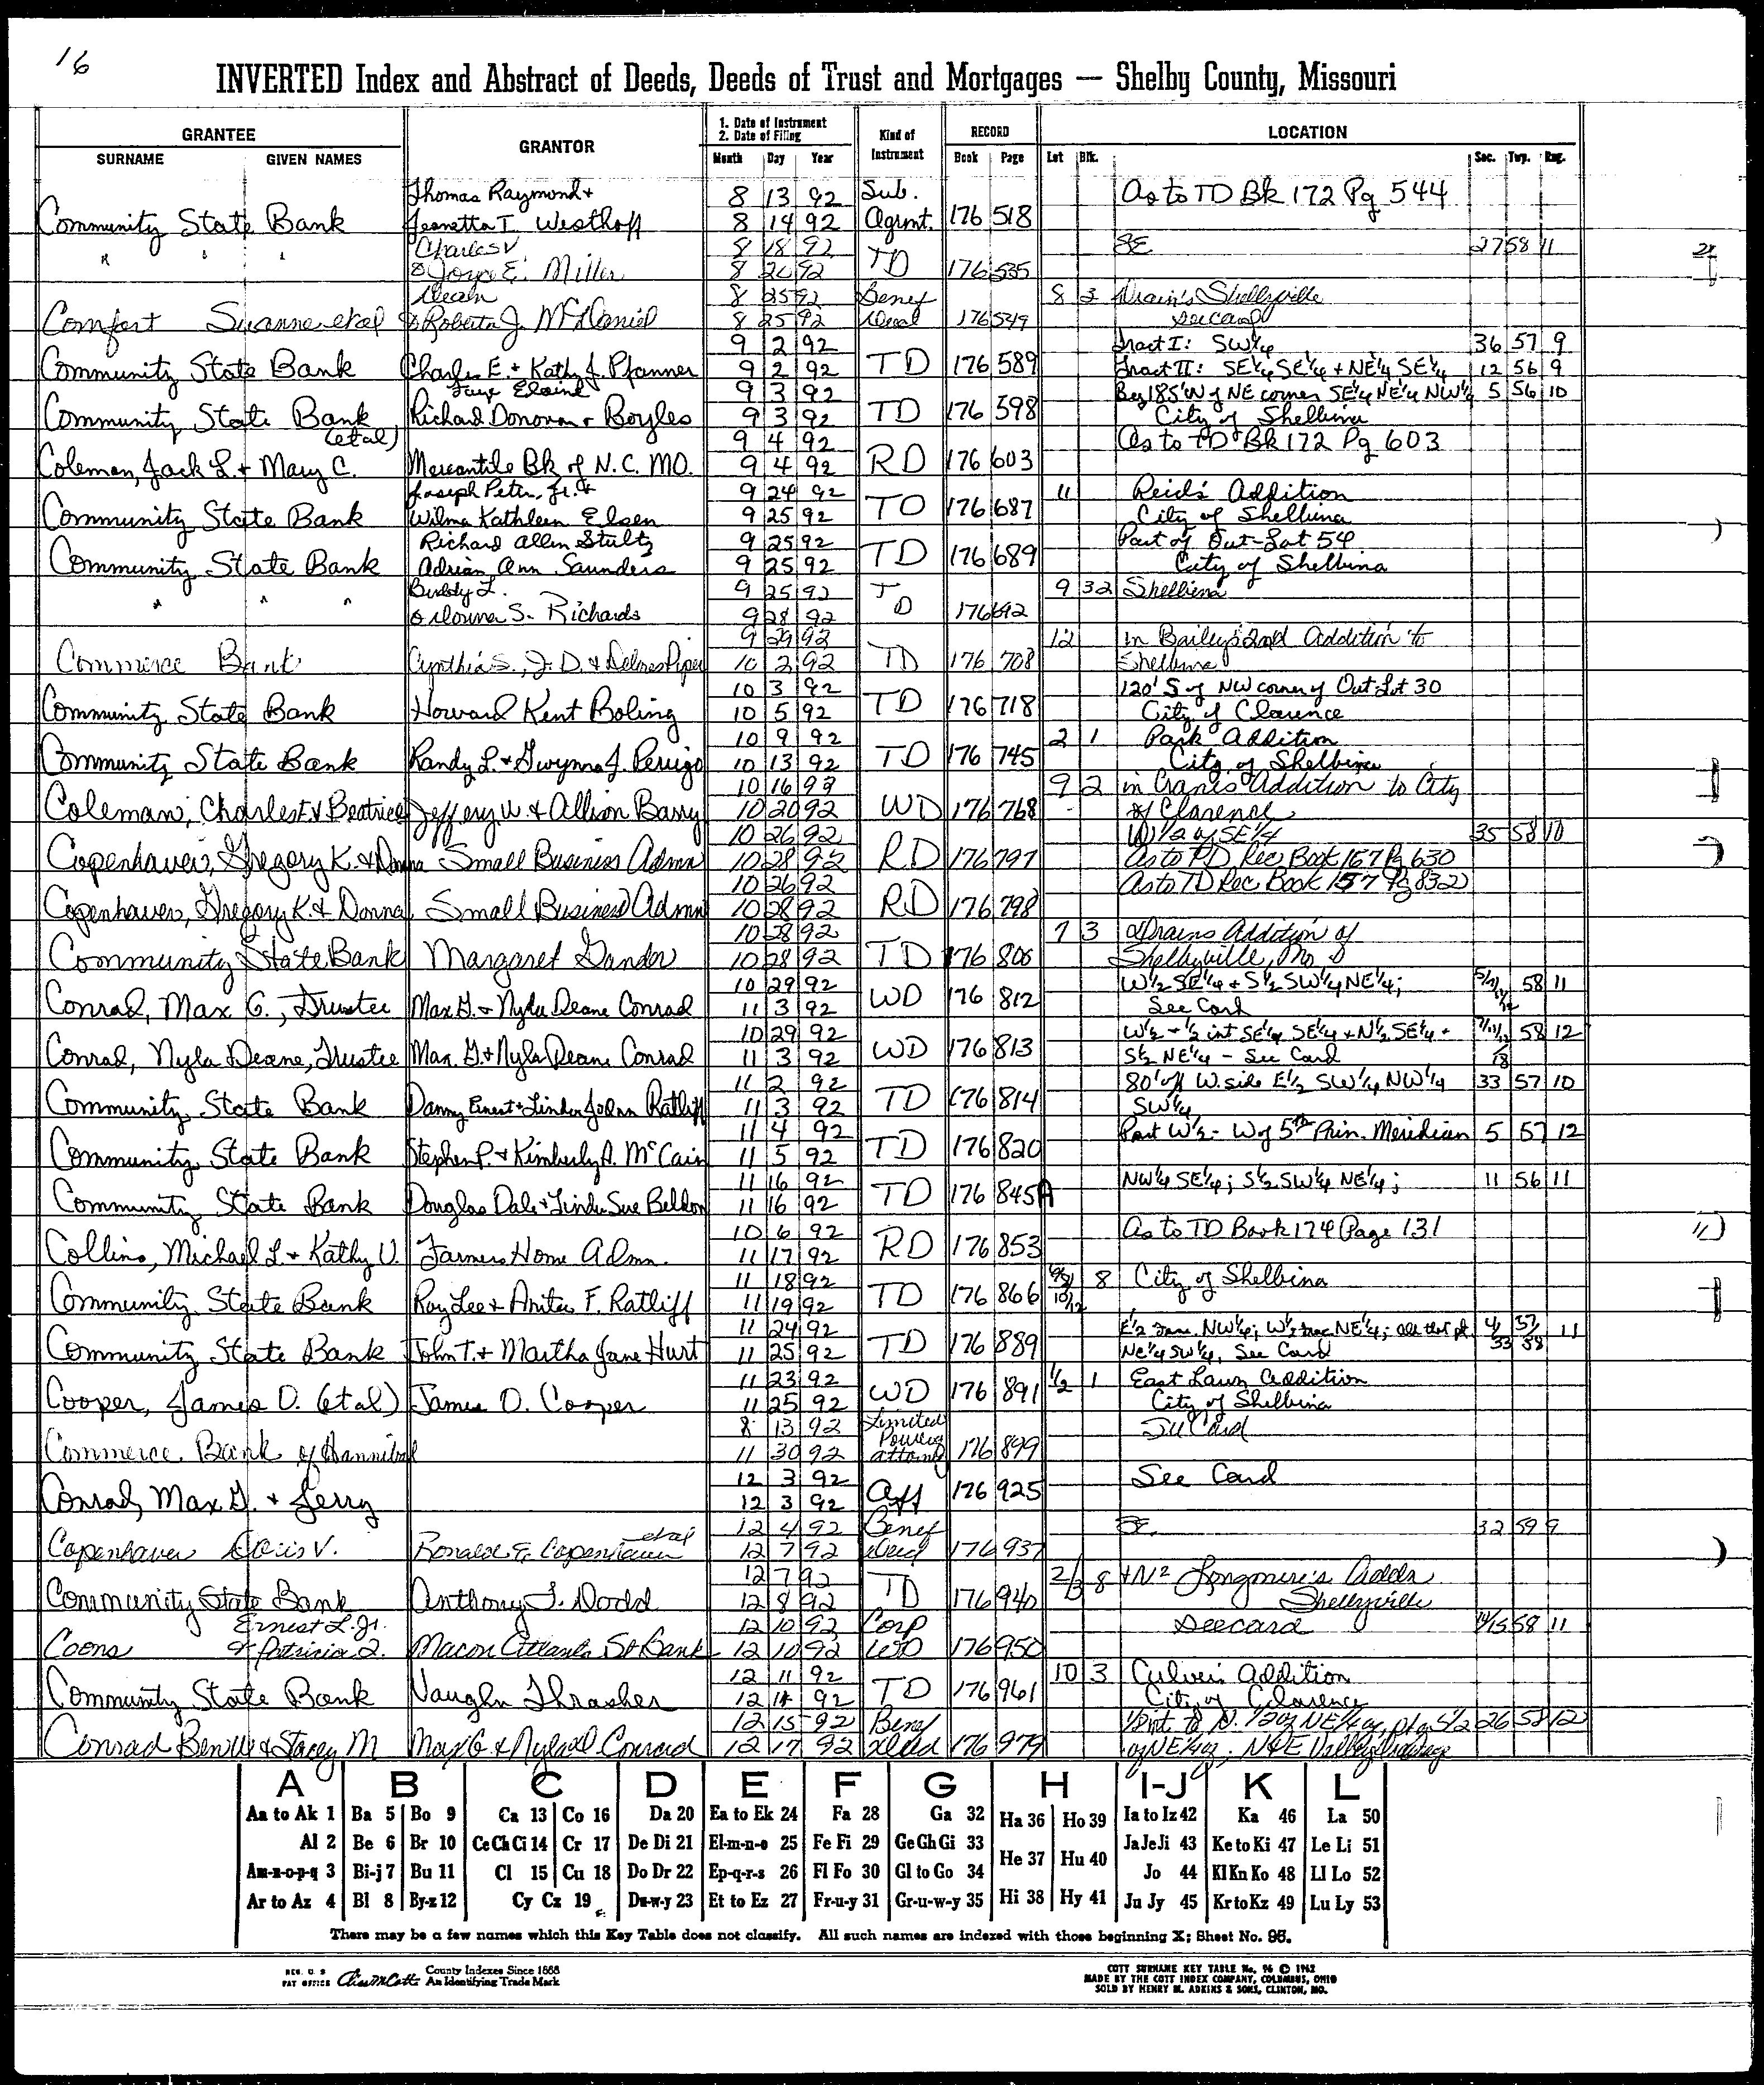 16
INVERTED Index and Abstract of Deeds, Deeds of Trust and Mortgages — Shelby County, Missouri
GRANTEE GRANTOR 1. Date of Instrument 2. Date of Filing Kind of Instrument RECORD LOCATION
SURNAME GIVEN NAMES Month Day Year Book Page Lot Blk. Sec. Twp. Rng.
Thomas Raymond + 8 13 92 Sub. As to TD Bk 172 Pg 544
Community State Bank Jeanetta T. Westhoff 8 14 92 Agrmt. 176 518
Charles V 8 18 92 SE 27 58 11
" " " & Joyce E. Miller 8 26 92 TD 176 535
8 25 92 Benef 8 3 Drain's Shelbyville
Comfort Suanne et al & Roberta J. McDaniel 8 25 92 Deed 176 549 see card
9 2 92 Tract I: SW¼ 36 57 9
Community State Bank Charles E. + Kathy J. Pfanner 9 2 92 TD 176 589 Tract II: SE¼ SE¼ + NE¼ SE¼ 12 56 9
Faye Elaine 9 3 92 Beg 185' W of NE corner SE¼ NE¼ NW¼ 5 56 10
Community State Bank Richard Donovan + Boyles 9 3 92 TD 176 598 City of Shelbina
(et al) 9 4 92 As to TD Bk 172 Pg 603
Coleman, Jack L. + Mary C. Mercantile Bk of N.C. MO. 9 4 92 RD 176 603
Joseph Peter, Jr. + 9 24 92 11 Reid's Addition
Community State Bank Wilma Kathleen Elsen 9 25 92 TD 176 687 City of Shelbina
Richard Allen Stultz 9 25 92 Part of Out-Lot 54
Community State Bank Adrian Ann Saunders 9 25 92 TD 176 689 City of Shelbina
Buddy L. 9 25 92 9 32 Shelbina
" " " & Donna S. Richards 9 28 92 TD 176 692
9 29 92 12 in Bailey's 2nd Addition to
Commerce Bank Cynthia S., J. D. & Delores Piper 10 2 92 TD 176 708 Shelbina
10 3 92 120' S of NW corner of Out Lot 30
Community State Bank Howard Kent Boling 10 5 92 TD 176 718 City of Clarence
10 9 92 2 1 Park Addition
Community State Bank Randy L. + Gwynna J. Perrigo 10 13 92 TD 176 745 City of Shelbina
10 16 93 9 2 in Crane's Addition to City
Coleman, Charles E & Beatrice Jeffery W. & Allison Barry 10 20 92 WD 176 768 of Clarence
10 26 92 W 1/2 of SE 1/4 35 58 10
Copenhaver, Gregory K. & Donna Small Business Admn 10 28 92 RD 176 797 As to TD Rec Book 157 Pg 630
10 26 92 As to TD Rec Book 157 Pg 832
Copenhaver, Gregory K. & Donna Small Business Admn 10 28 92 RD 176 798
10 28 92 7 3 Drains Addition of
Community State Bank Margaret Gander 10 28 92 TD 176 806 Shelbyville, Mo
10 29 92 W½ SE¼ + S½ SW¼ NE¼; 58 11
Conrad, Max G., Trustee Max G. + Nyla Deane Conrad 11 3 92 WD 176 812 See Card
10 29 92 W½ + ½ int SE¼ SE¼ + N½ SE¼ + 58 12
Conrad, Nyla Deane, Trustee Max G. + Nyla Deane Conrad 11 3 92 WD 176 813 S½ NE¼ - See Card
11 2 92 80' off W. side E½ SW¼ NW¼ 33 57 10
Community State Bank Danny Ernest + Linda JoAnn Ratliff 11 3 92 TD 176 814 SW¼
11 4 92 Part W½ - W of 5th Prin. Meridian 5 57 12
Community State Bank Stephen P. + Kimberly A. McCain 11 5 92 TD 176 820
11 16 92 NW¼ SE¼; S½ SW¼ NE¼; 11 56 11
Community State Bank Douglas Dale + Linda Sue Beldon 11 16 92 TD 176 845A
10 6 92 As to TD Book 174 Page 131
Collins, Michael L. + Kathy V. Farmers Home Admn. 11 17 92 RD 176 853
11 18 92 8 City of Shelbina
Community State Bank Roy Lee + Anita F. Ratliff 11 19 92 TD 176 866
11 24 92 E½ NW¼; W½ NE¼; all that pt 4/33 57/58 11
Community State Bank John T. + Martha Jane Hurt 11 25 92 TD 176 889 NE¼ SW¼, See Card
11 23 92 1/2 1 East Lawn Addition
Cooper, James D. (et al) James D. Cooper 11 25 92 WD 176 891 City of Shelbina
8 13 92 Limited Power of Attorney See Card
Commerce Bank of Hannibal 11 30 92 176 899
12 3 92 See Card
Conrad, Max G. + Jerry 12 3 92 Aff 176 925
et al 12 4 92 Benef 32 59 9
Copenhaver Doris V. Ronald E. Copenhaver 12 7 92 Deed 176 937
12 7 92 2/3 8 + N² Longmire's Addn
Community State Bank Anthony J. Dodd 12 8 92 TD 176 940 Shelbyville
Ernest L. Jr. 12 10 92 Corp See card 14/15 58 11
Coons & Patricia L. Macon Atlanta St Bank 12 10 92 WD 176 950
12 11 92 10 3 Culver's Addition
Community State Bank Vaughn Thrasher 12 14 92 TD 176 961 City of Clarence
12 15 92 Benf 26 58 12
Conrad & Stacey M Max G & Conrad 12 17 92 Deed 176 979
A B C D E F G H I-J K L
Aa to Ak 1 Ba 5 Bo 9 Ca 13 Co 16 Da 20 Ea to Ek 24 Fa 28 Ga 32 Ha 36 Ho 39 Ia to Iz 42 Ka 46 La 50
Al 2 Be 6 Br 10 Ce Ch Ci 14 Cr 17 De Di 21 El-m-n-o 25 Fe Fi 29 Ge Gh Gi 33 He 37 Hu 40 Ja Je Ji 43 Ke to Ki 47 Le Li 51
Am-n-o-p-q 3 Bi-j 7 Bu 11 Cl 15 Cu 18 Do Dr 22 Ep-q-r-s 26 Fl Fo 30 Gl to Go 34 Hi 38 Hy 41 Jo 44 Kl Kn Ko 48 Ll Lo 52
Ar to Az 4 Bl 8 By-z 12 Cy Cz 19 Du-w-y 23 Et to Ez 27 Fr-u-y 31 Gr-u-w-y 35 Ju Jy 45 Kr to Kz 49 Lu Ly 53
There may be a few names which this Key Table does not classify. All such names are indexed with those beginning X; Sheet No. 95.
REG. U. S. PAT OFFICE County Indexes Since 1888 An Identifying Trade Mark
COTT SURNAME KEY TABLE No. 96 © 1962
MADE BY THE COTT INDEX COMPANY, COLUMBUS, OHIO
SOLD BY HENRY M. ADKINS & SONS, CLINTON, MO.